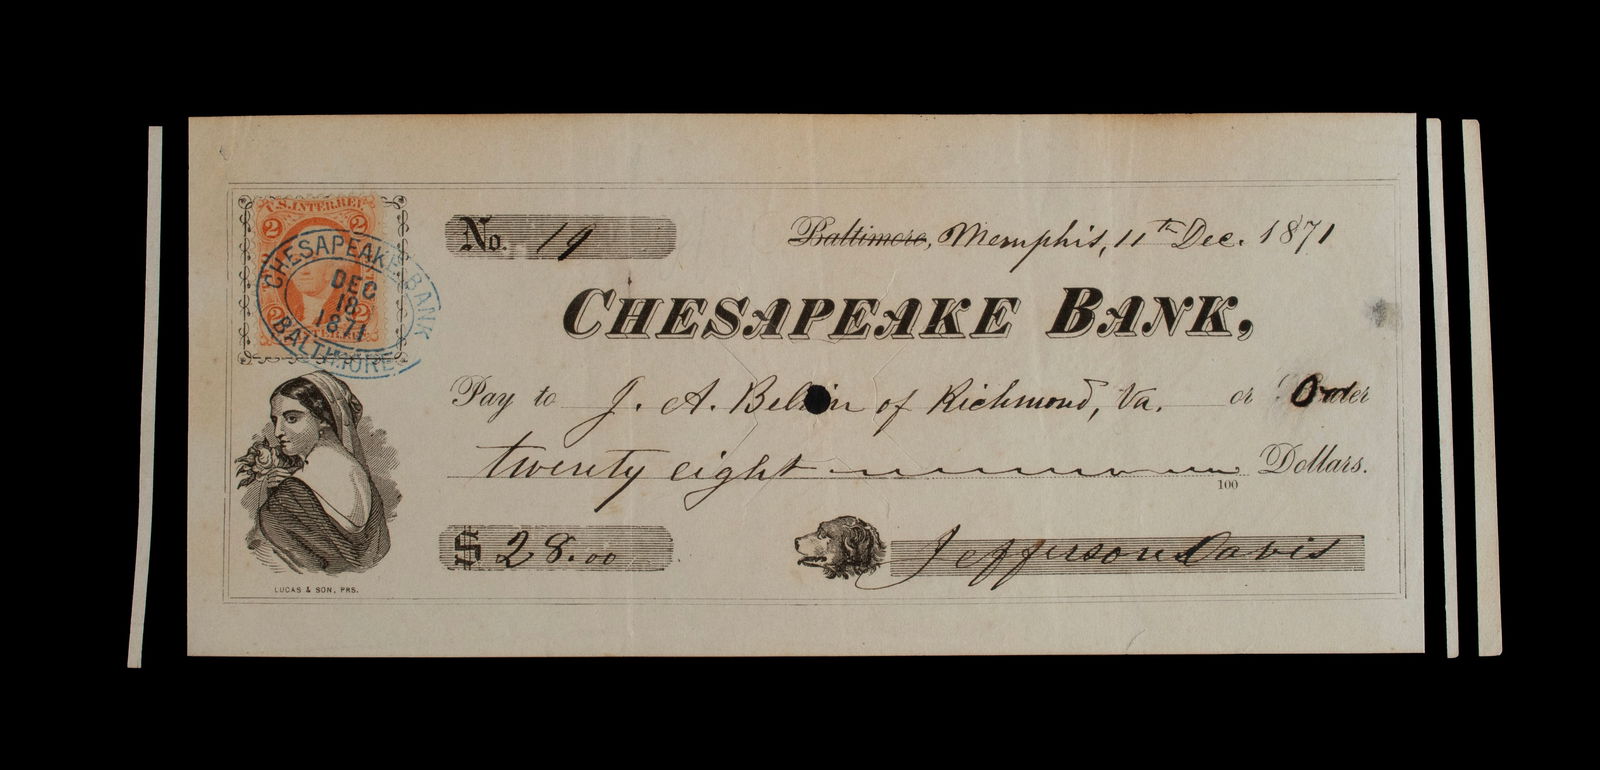 U.S. INTER. REV.
2 2
2 2
CHESAPEAKE BANK
DEC
18
1871
BALTIMORE
No. 19
Baltimore, Memphis, 11th Dec. 1871
CHESAPEAKE BANK,
Pay to J. A. of Richmond, Va. or Order
twenty eight Dollars.
100
$ 28.00
Jefferson Davis
LUCAS & SON, PRS.